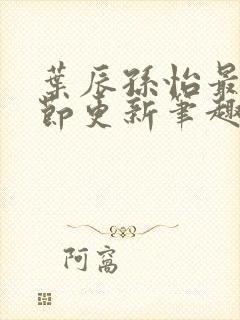 葉辰孫怡最
節更新筆趣
阿窩